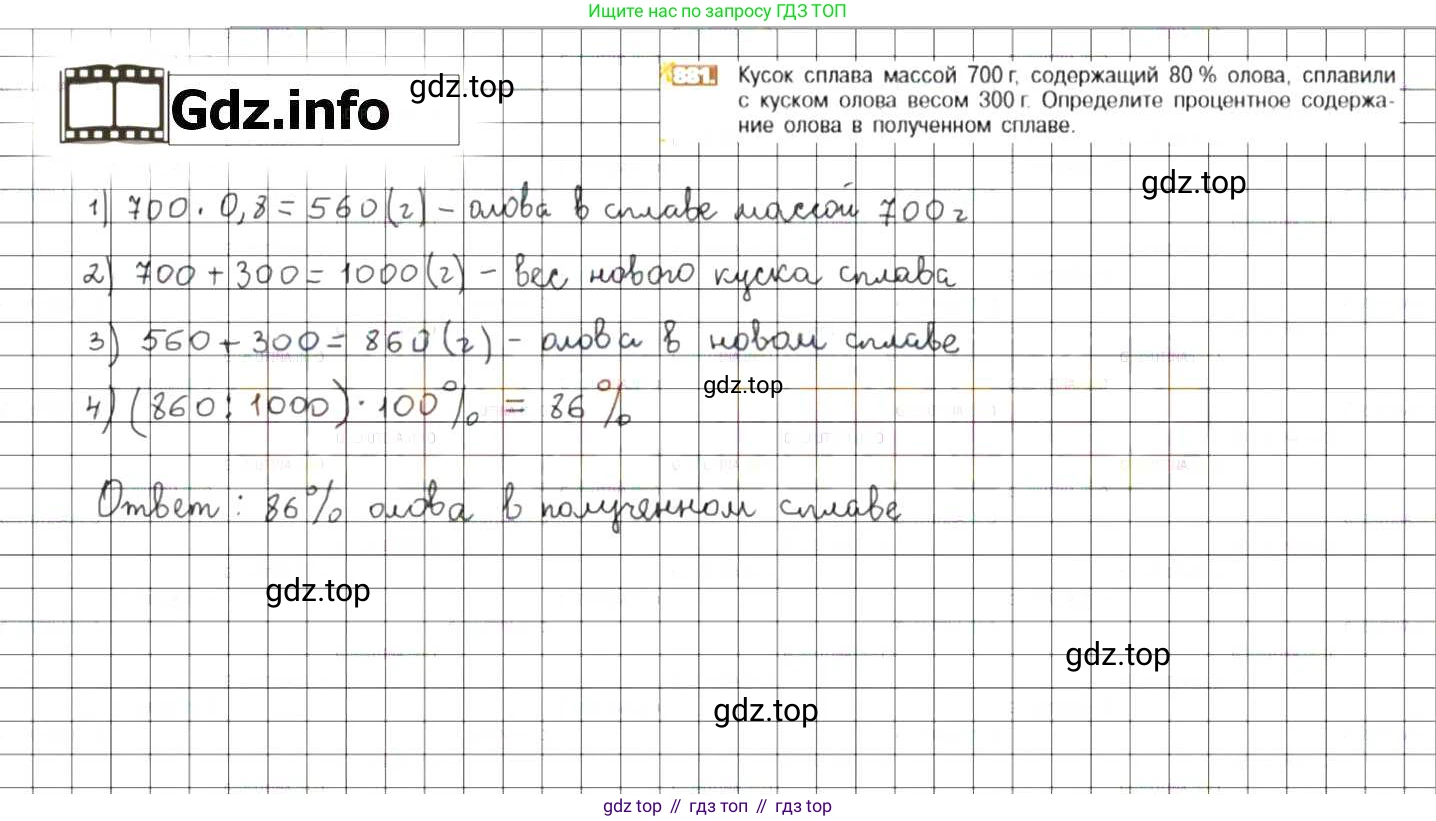 Ищите нас по запросу ГДЗ ТОП
Gdz.info
gdz.top
881. Кусок сплава массой 700 г, содержащий 80 % олова, сплавили
с куском олова весом 300 г. Определите процентное содержа-
ние олова в полученном сплаве.
gdz.top
1) 700 · 0,8 = 560 (г) – олова в сплаве массой 700 г
2) 700 + 300 = 1000 (г) – вес нового куска сплава
3) 560 + 300 = 860 (г) – олова в новом сплаве
gdz.top
4) (860 : 1000) · 100% = 86 %
Ответ : 86% олова в полученном сплаве
gdz.top
gdz.top
gdz.top
gdz top // гдз топ // gdz top